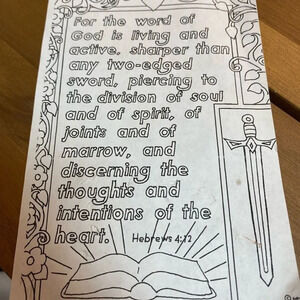 For the word of
God is living and
active, sharper than
any two-edged
sword, piercing to
the division of soul
and of spirit, of
joints and of
marrow, and
discerning the
thoughts and
intentions of the
heart. Hebrews 4:12